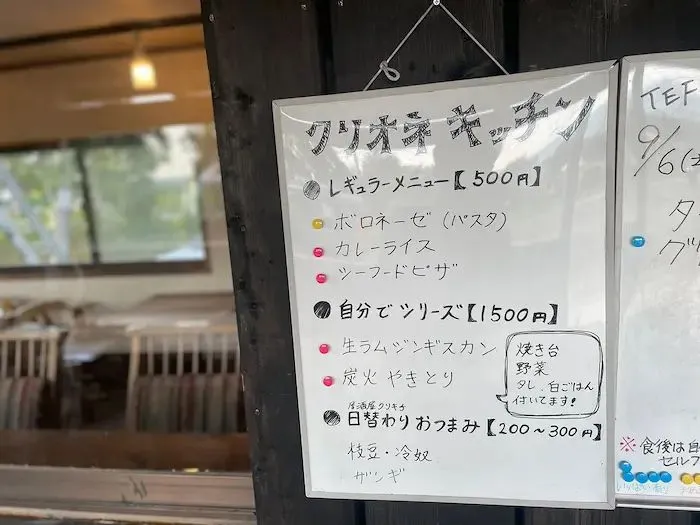 クリオネキッチン
レギュラーメニュー【500円】
ボロネーゼ(パスタ)
カレーライス
シーフードピザ
自分でシリーズ【1500円】
生ラムジンギスカン
炭火やきとり
焼き台
野菜
タレ、白ごはん
付いてます!
居酒屋クリキチ
日替わりおつまみ【200〜300円】
枝豆・冷奴
ザンギ
TEF
9/6(土
タ
グリ
※食後は自
セルフ